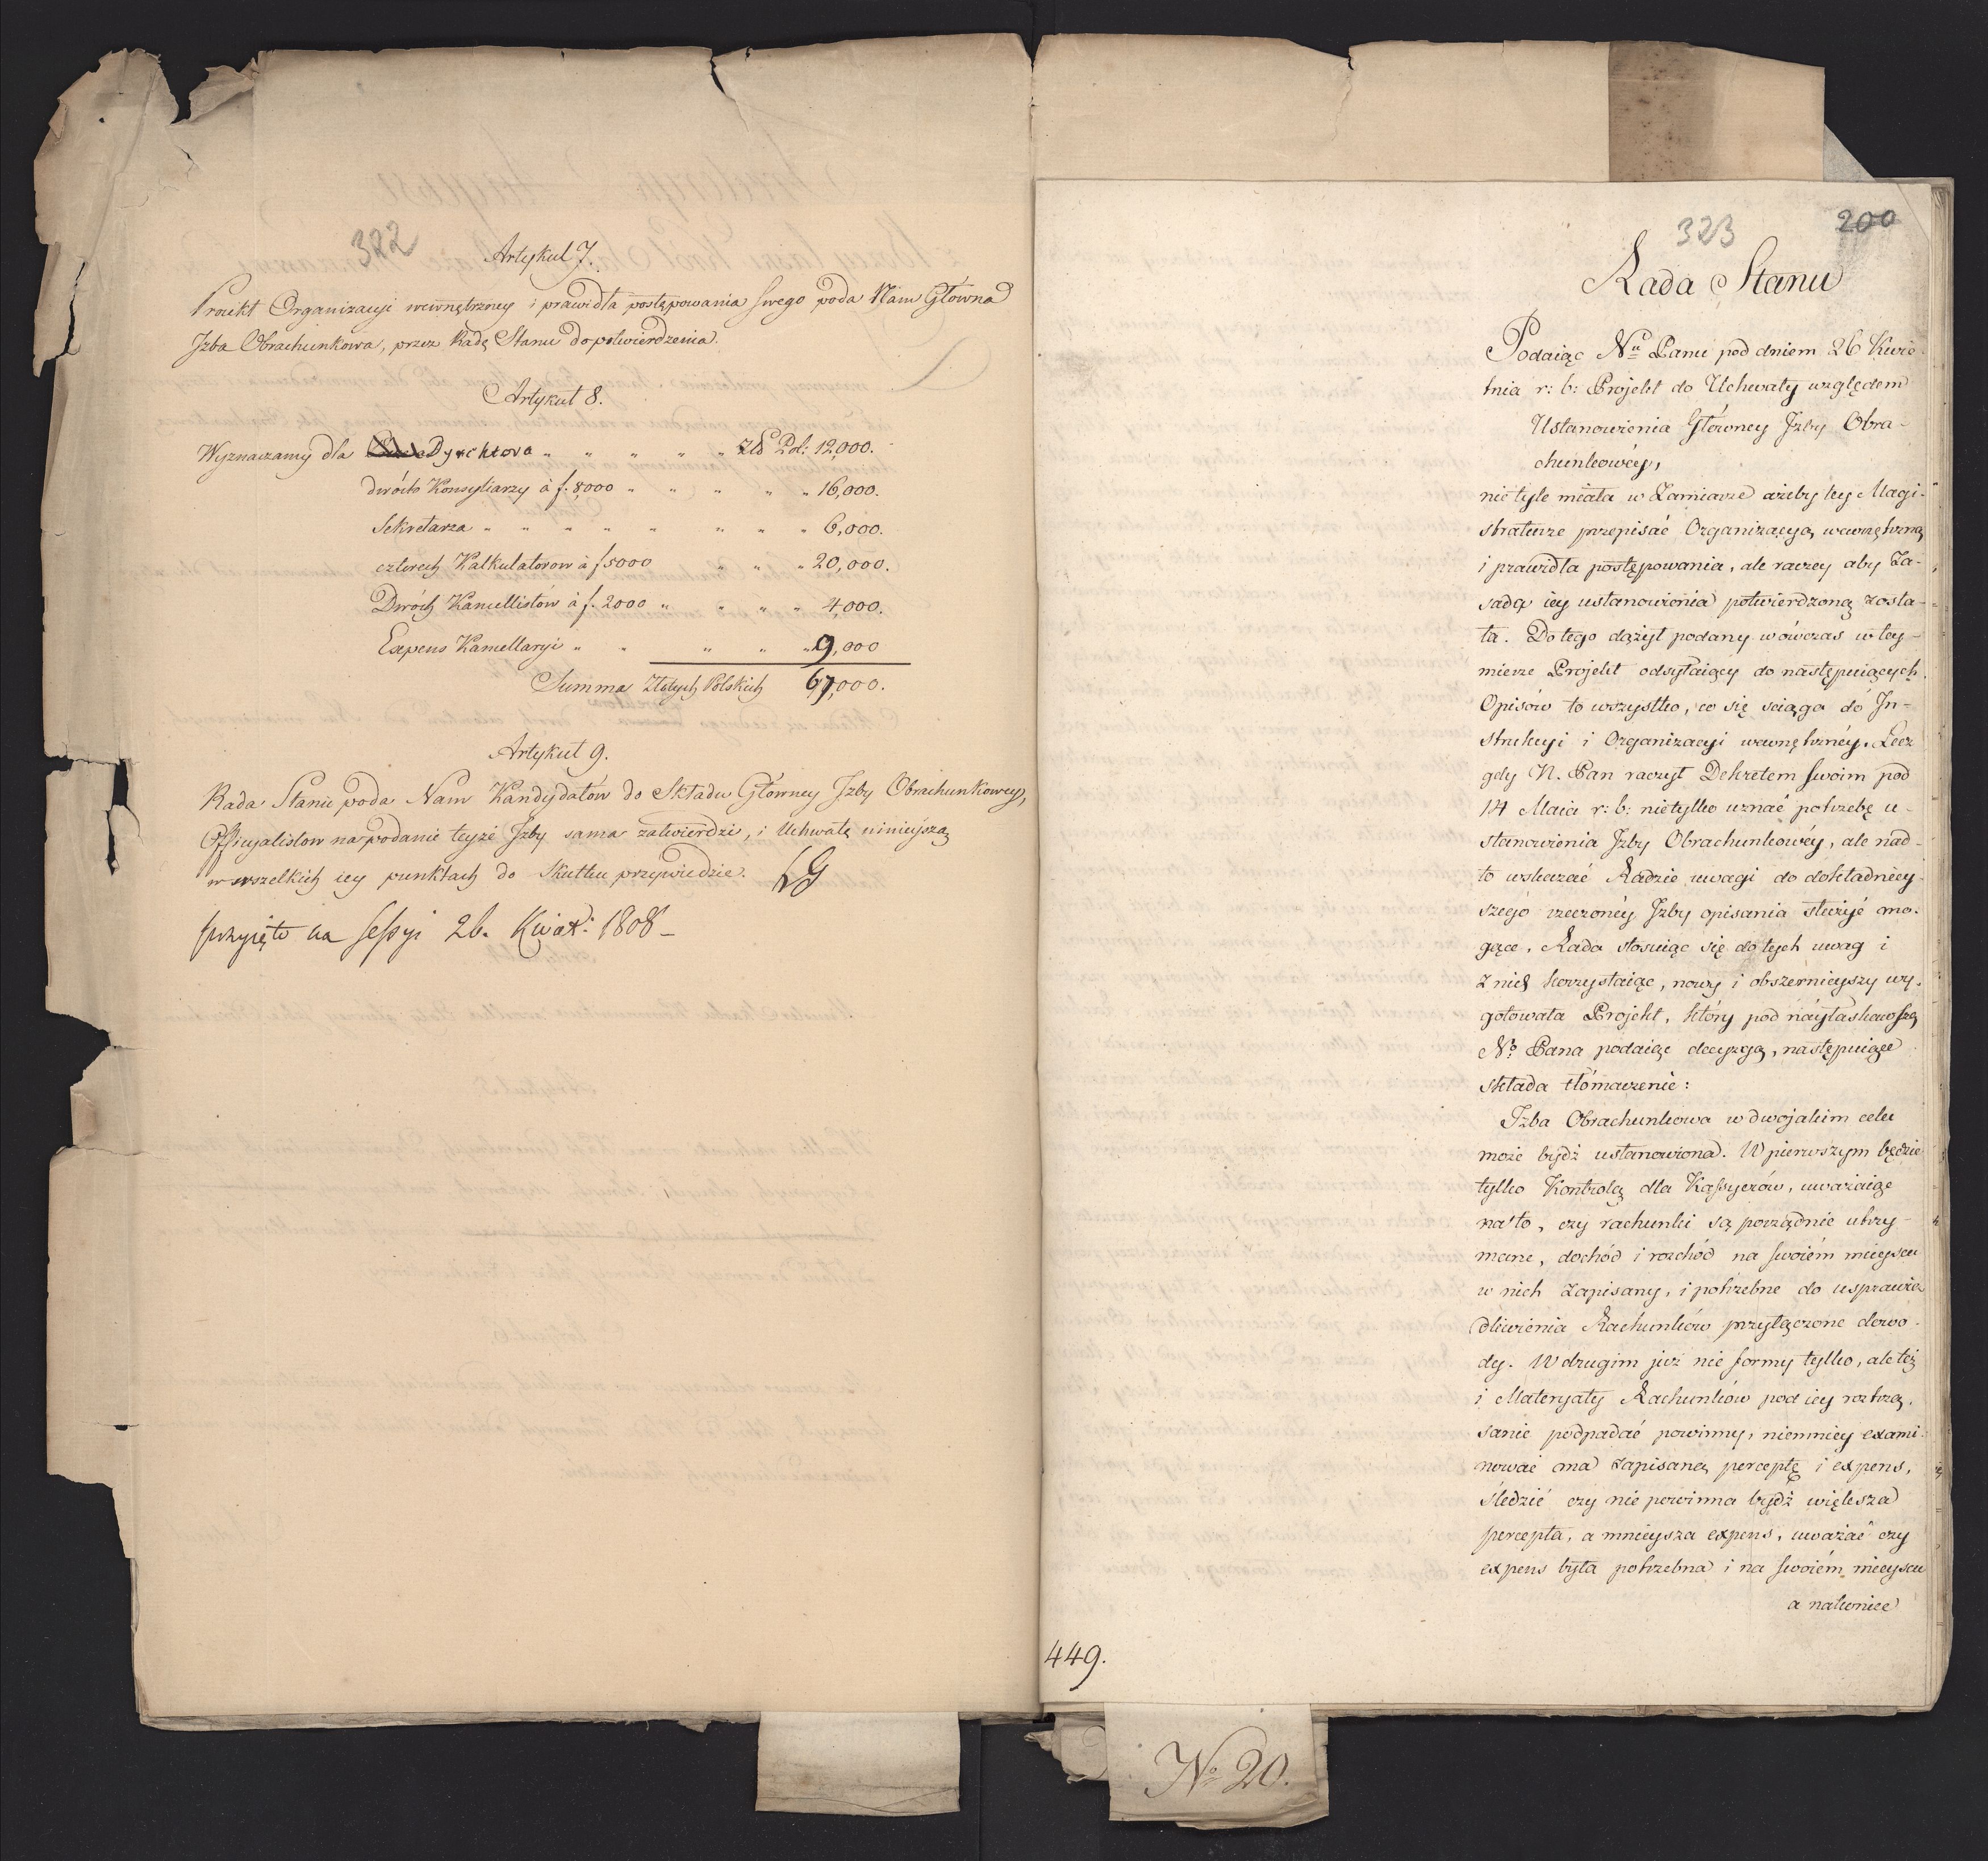 322
Artykuł 7.
Proiekt Organizacyi wewnętrzney i prawidła postępowania swego poda Nam Główna
Jzba Obrachunkowa, przez Radę Stanu do potwierdzenia.
Artykuł 8.
Wyznaczamy dla Dyrektora " " " " " Złł Pol: 12,000.
dwóch Konsyliarzy à f. 8,000 " " " " " 16,000.
Sekretarza " " " " " " " " 6,000.
czterech Kalkulatorow à f 5000 " " " 20,000.
Dwóch Kancellistów à f. 2000 " " " " 4,000.
Expens Kancellaryi " " " " " 9,000
Summa Złotych Polskich 67,000.
Artykuł 9.
Rada Stanu poda Nam Kandydatów do Składu Główney Jzby Obrachunkowey,
Officyalistow na podanie teyże Jzby sama zatwierdzi, i Uchwałę ninieyszą
w wszelkich iey punktach do Skutku przywiedzie.
przyięto na Sessyi 26. Kwiet: 1808 –
323
200
Rada Stanu
Podaiąc Nu Panu pod dniem 26 Kwie-
tnia r: b: Projekt do Uchwały względem
Ustanowienia Główney Jzby Obra-
chunkowéy,
nie tyle miała w Zamiarze ażeby tey Magi-
straturze przepisać Organizacyą wewnętrzną
i prawidła postępowania, ale raczey aby Za-
sada iey ustanowienia potwierdzoną zosta-
ła. Do tego dążył podany wówczas w tey-
mierze Projekt odsyłaiący do następuiących
Opisów to wszystko, co się sciąga do Jn-
strukcyi i Organizacyi wewnętrznéy. Lecz
gdy N. Pan raczył Dekretem swoim pod
14 Maia r: b: nietylko uznać potrzebę u-
stanowienia Jzby Obrachunkowéy, ale nad-
to wskazać Radzie uwagi do dokładniey-
szégo rzeczonéy Jzby opisania służyć mo-
gące, Rada stosuiąc się do tych uwag i
z nich korzystaiąc, nowy i obszernieyszy wy-
gotowała Projekt, który pod náyłaskawszą
No Pana podaiąc decyzyą, następuiące
składa tłómaczenie:
Jzba Obrachunkowa w dwojakim celu
może bydź ustanowiona. W pierwszym będzie
tylko Kontrolą dla Kassyerów, uważaiąc
na to, czy rachunki są porządnie utrzy-
mane, dochód i rozchód na swoiém mieyscu
w nich zapisany, i potrzebne do usprawie-
dliwienia Rachunków przyłączone dowo-
dy. W drugim już nie formy tylko, ale też
i Materyały Rachunków pod iey roztrzą-
sanie podpadać powinny, niemniey exami-
nować ma zapisaną perceptę i expens,
śledzić czy nie powinna bydź większa
percepta, a mnieysza expens, uważać czy
expens była potrzebna i na swoiém mieyscu
a nakoniec
449.
No 20.